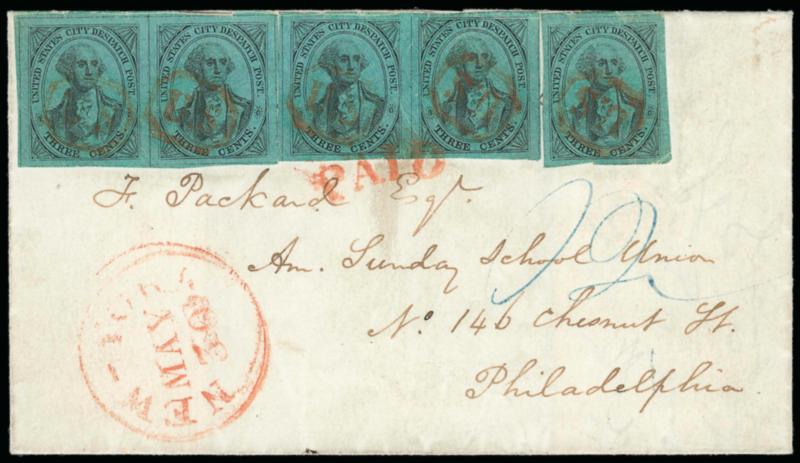 UNITED STATES CITY DESPATCH POST.
THREE CENTS.
UNITED STATES CITY DESPATCH POST.
THREE CENTS.
UNITED STATES CITY DESPATCH POST.
THREE CENTS.
UNITED STATES CITY DESPATCH POST.
THREE CENTS.
UNITED STATES CITY DESPATCH POST.
THREE CENTS.
PAID
F. Packard Esqr.
Am. Sunday School Union
No. 146 Chesnut St.
Philadelphia.
NEW-YORK
MAY